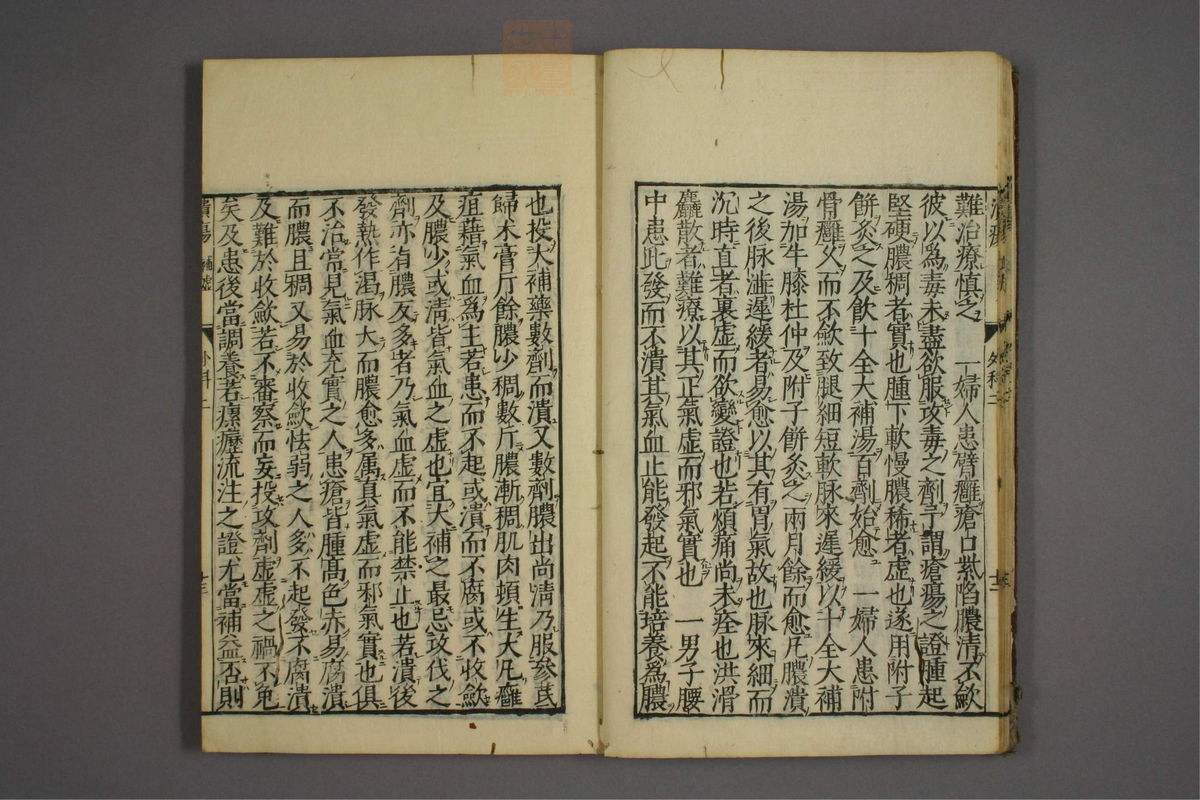 難治療慎之　一婦人患臂癰瘡口紫陷膿清不斂
彼以爲毒未盡欲服攻毒之劑予謂瘡瘍之證腫起
堅硬膿稠者實也腫下軟慢膿稀者虛也遂用附子
餅灸之及飲十全大補湯百劑始愈　一婦人患附
骨癰久而不斂致腿細短軟脉來遲緩以十全大補
湯加牛膝杜仲及附子餅灸之兩月餘而愈凡膿潰
之後脉澁遲緩者易愈以其有胃氣故也脉來細而
沉時直者裏虛而欲變證也若煩痛尚未痊也洪滑
麤散者難療以其正氣虛而邪氣實也　一男子腰
中患此發而不潰其氣血止能發起不能培養爲膿
也投大補藥數劑而潰又數劑膿出尚清乃服參芪
歸术膏斤餘膿少稠數斤膿漸稠肌肉頓生大凡癰
疽藉氣血爲主若患而不起或潰而不腐或不收斂
及膿少或清皆氣血之虛也宜大補之最忌攻伐之
劑亦有膿反多者乃氣血虛而不能禁止也若潰後
發熱作渴脉大而膿愈多属真氣虛而邪氣實也俱
不治常見氣血充實之人患瘡皆腫高色赤易腐潰
而膿且稠又易於收斂怯弱之人多不起發不腐潰
及難於收斂若不審察而妄投攻劑虛虛之禍不免
矣及患後當調養若瘰癧流注之證尤當補益否則
潰瘍　補虛　外科二　十三